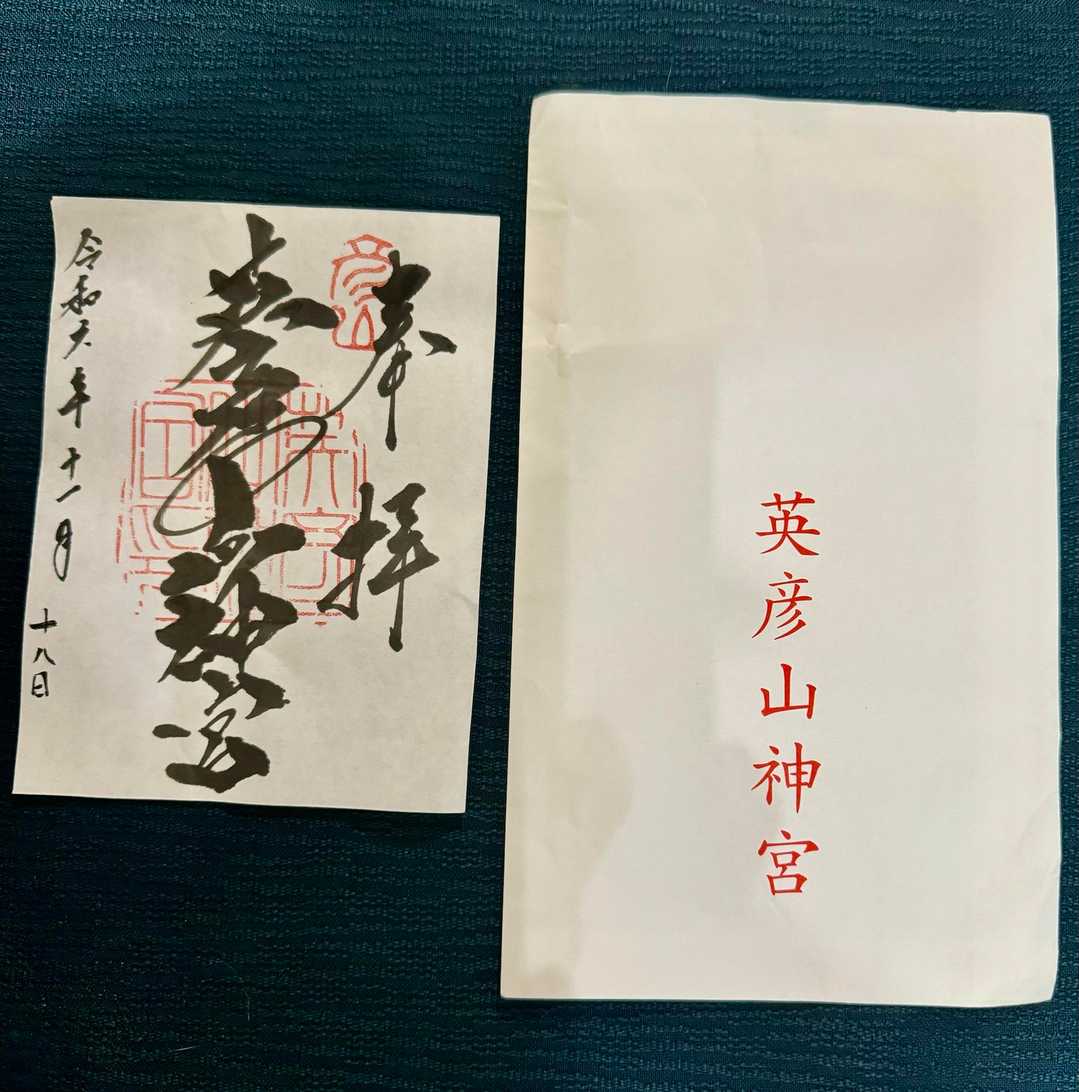 奉拝
彦山
英彦山神宮
令和六年十一月十八日
英彦山神宮